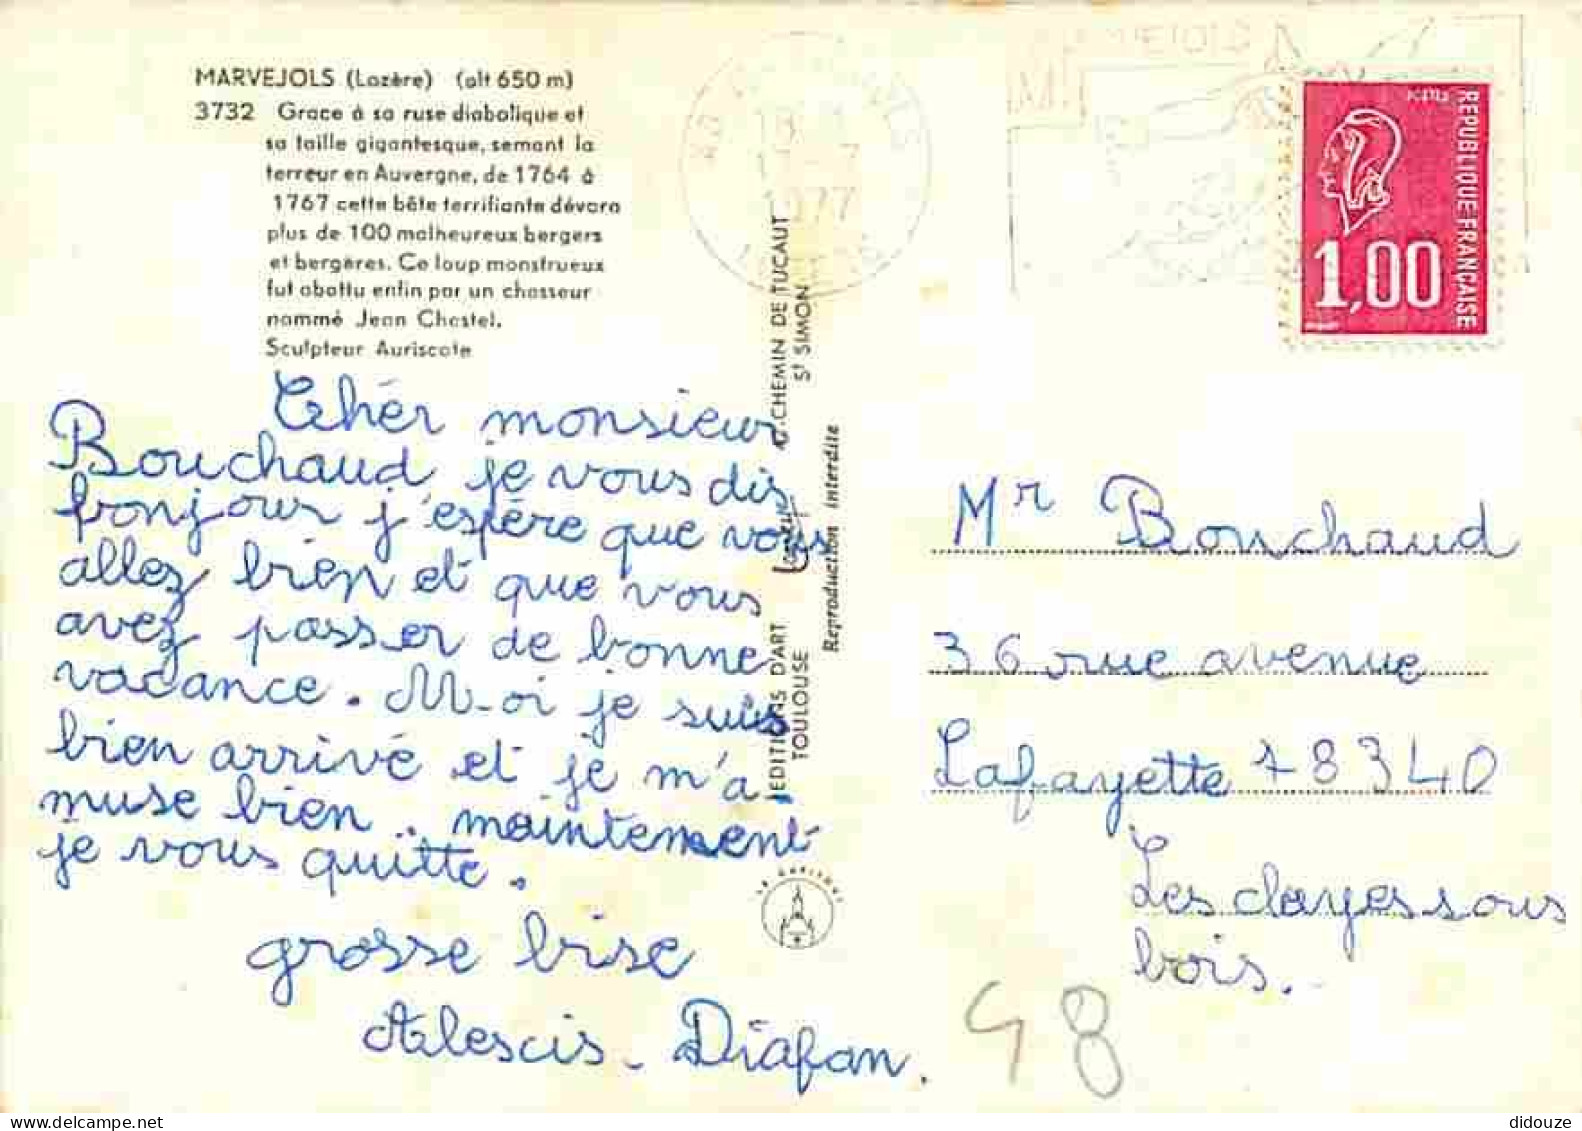 MARVEJOLS (Lozère) (alt 650 m)
3732 Grace à sa ruse diabolique et
sa taille gigantesque, semant la
terreur en Auvergne, de 1764 à
1767 cette bête terrifiante dévora
plus de 100 malheureux bergers
et bergères. Ce loup monstrueux
fut abattu enfin par un chasseur
nommé Jean Chastel.
Sculpteur Auriscote
Chér monsieur
Bouchaud je vous dis
bonjour j'espère que vous
allez bien et que vous
avez passer de bonne
vacance. Moi je suis
bien arrivé et je m'a
muse bien. maintenent
je vous quitte.
grosse bise
Alescis - Diafan.
EDITIONS D'ART
TOULOUSE
CHEMIN DE TUCAUT
St SIMON
Reproduction interdite
1977
REPUBLIQUE FRANÇAISE
POSTES
1,00
Mr Bouchaud
36 rue avenue
Lafayette 78340
Les clayes sous
bois.
48
didouze